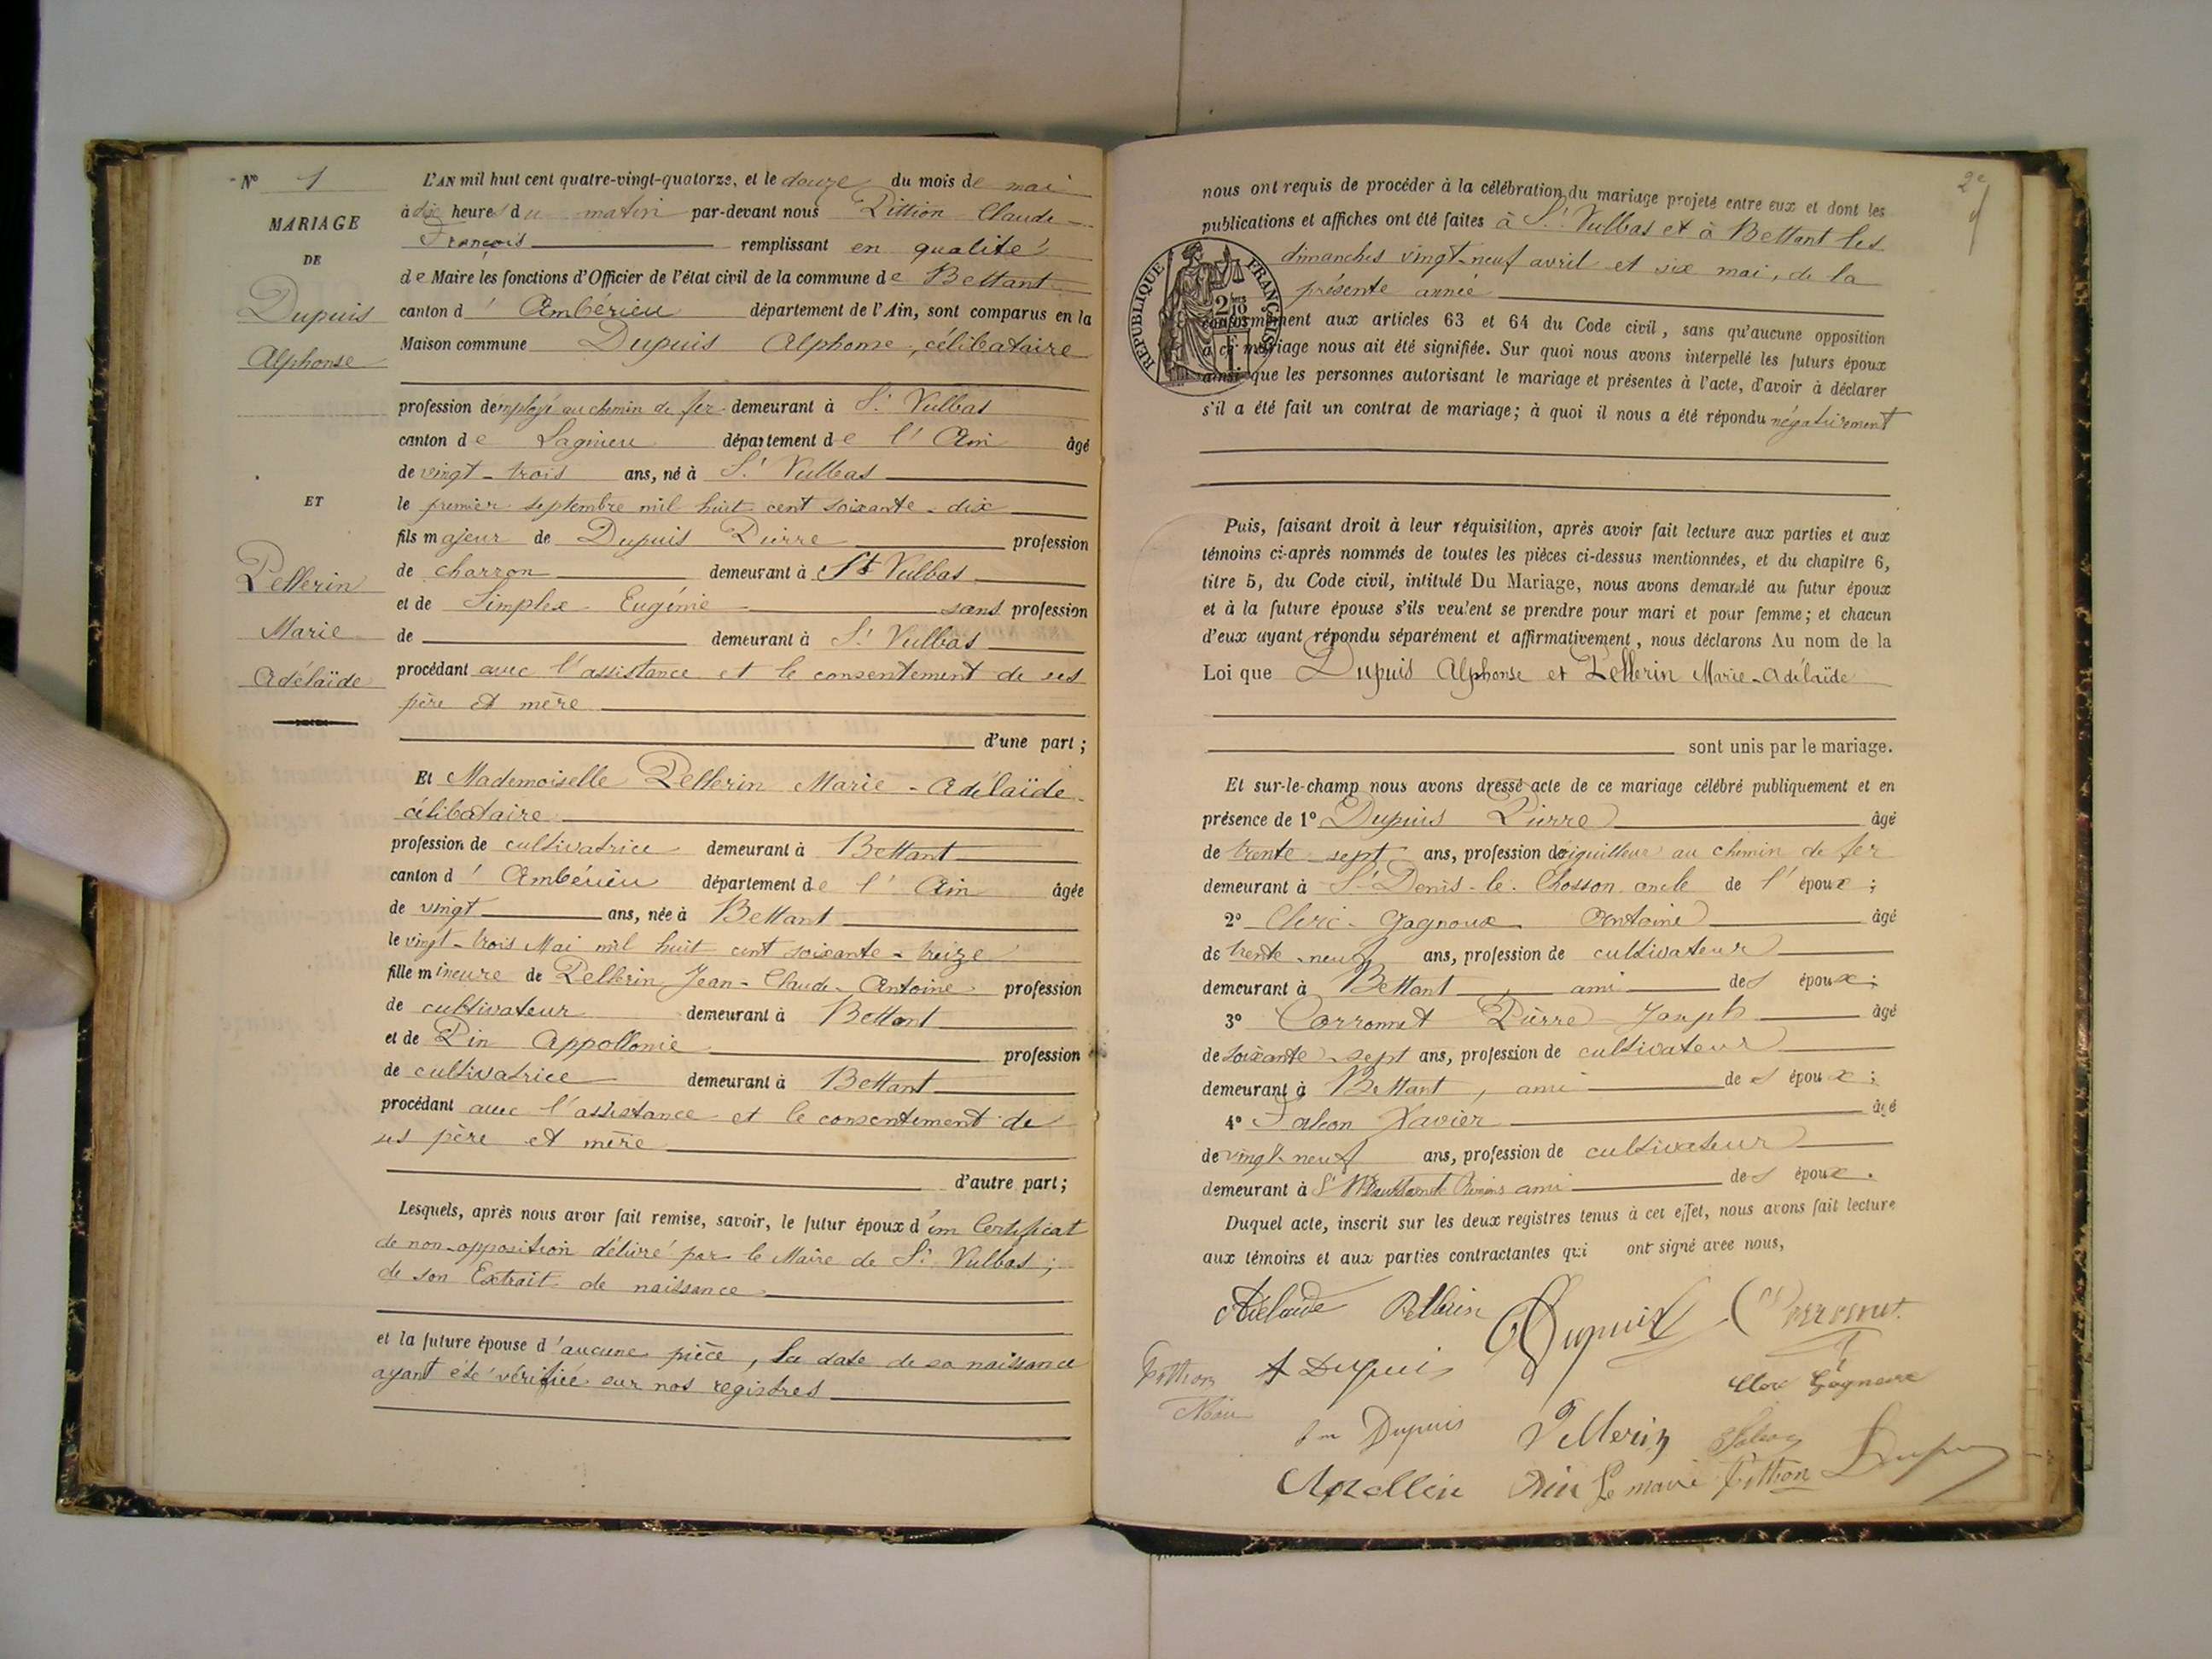 N° 1
MARIAGE
DE
Dupuis
Alphonse
ET
Pellerin
Marie
Adélaïde
L'AN mil huit cent quatre-vingt-quatorze, et le douze du mois de mai
à dix heures du matin par-devant nous Pittion Claude
François remplissant en qualité
de Maire les fonctions d'Officier de l'état civil de la commune de Bettant
canton d' Ambérieu département de l'Ain, sont comparus en la
Maison commune Dupuis Alphonse, célibataire
profession d'employé au chemin de fer demeurant à St Vulbas
canton de Lagnieu département de l'Ain âgé
de vingt-trois ans, né à St Vulbas
le premier septembre mil huit cent soixante-dix
fils majeur de Dupuis Pierre profession
de charron demeurant à St Vulbas
et de Simplex Eugénie sans profession
de demeurant à St Vulbas
procédant avec l'assistance et le consentement de ses
père et mère
d'une part;
Et Mademoiselle Pellerin Marie-Adélaïde
célibataire
profession de cultivatrice demeurant à Bettant
canton d' Ambérieu département de l'Ain âgée
de vingt ans, née à Bettant
le vingt-trois Mai mil huit cent soixante-treize
fille mineure de Pellerin Jean-Claude-Antoine profession
de cultivateur demeurant à Bettant
et de Pin Appollonie profession
de cultivatrice demeurant à Bettant
procédant avec l'assistance et le consentement de
ses père et mère
d'autre part;
Lesquels, après nous avoir fait remise, savoir, le futur époux d'un Certificat
de non-opposition délivré par le Maire de St Vulbas;
de son Extrait de naissance
et la future épouse d'aucune pièce, la date de sa naissance
ayant été vérifiée sur nos registres
2e
nous ont requis de procéder à la célébration du mariage projeté entre eux et dont les
publications et affiches ont été faites à St Vulbas et à Bettant les
dimanches vingt-neuf avril et six mai, de la
présente année
RÉPUBLIQUE FRANÇAISE
conformément aux articles 63 et 64 du Code civil, sans qu'aucune opposition
à ce mariage nous ait été signifiée. Sur quoi nous avons interpellé les futurs époux
ainsi que les personnes autorisant le mariage et présentes à l'acte, d'avoir à déclarer
s'il a été fait un contrat de mariage; à quoi il nous a été répondu négativement
Puis, faisant droit à leur réquisition, après avoir fait lecture aux parties et aux
témoins ci-après nommés de toutes les pièces ci-dessus mentionnées, et du chapitre 6,
titre 5, du Code civil, intitulé Du Mariage, nous avons demandé au futur époux
et à la future épouse s'ils veulent se prendre pour mari et pour femme; et chacun
d'eux ayant répondu séparément et affirmativement, nous déclarons Au nom de la
Loi que Dupuis Alphonse et Pellerin Marie-Adélaïde
sont unis par le mariage.
Et sur-le-champ nous avons dressé acte de ce mariage célébré publiquement et en
présence de 1° Dupuis Pierre âgé
de trente-sept ans, profession d'aiguilleur au chemin de fer
demeurant à St Denis-le-Chosson oncle de l'époux;
2° Clerc-Gagnoux Antoine âgé
de trente-neuf ans, profession de cultivateur
demeurant à Bettant, ami des époux;
3° Corronnet Pierre Joseph âgé
de soixante-sept ans, profession de cultivateur
demeurant à Bettant, ami des époux;
4° Falcon Xavier âgé
de vingt-neuf ans, profession de cultivateur
demeurant à St ami des époux.
Duquel acte, inscrit sur les deux registres tenus à cet effet, nous avons fait lecture
aux témoins et aux parties contractantes qui ont signé avec nous,
Adélaïde Pellerin Dupuis
Pittion A Dupuis Clerc Gagnoux
Dupuis Pellerin Falcon
Pin Le maire Pittion Dupuis